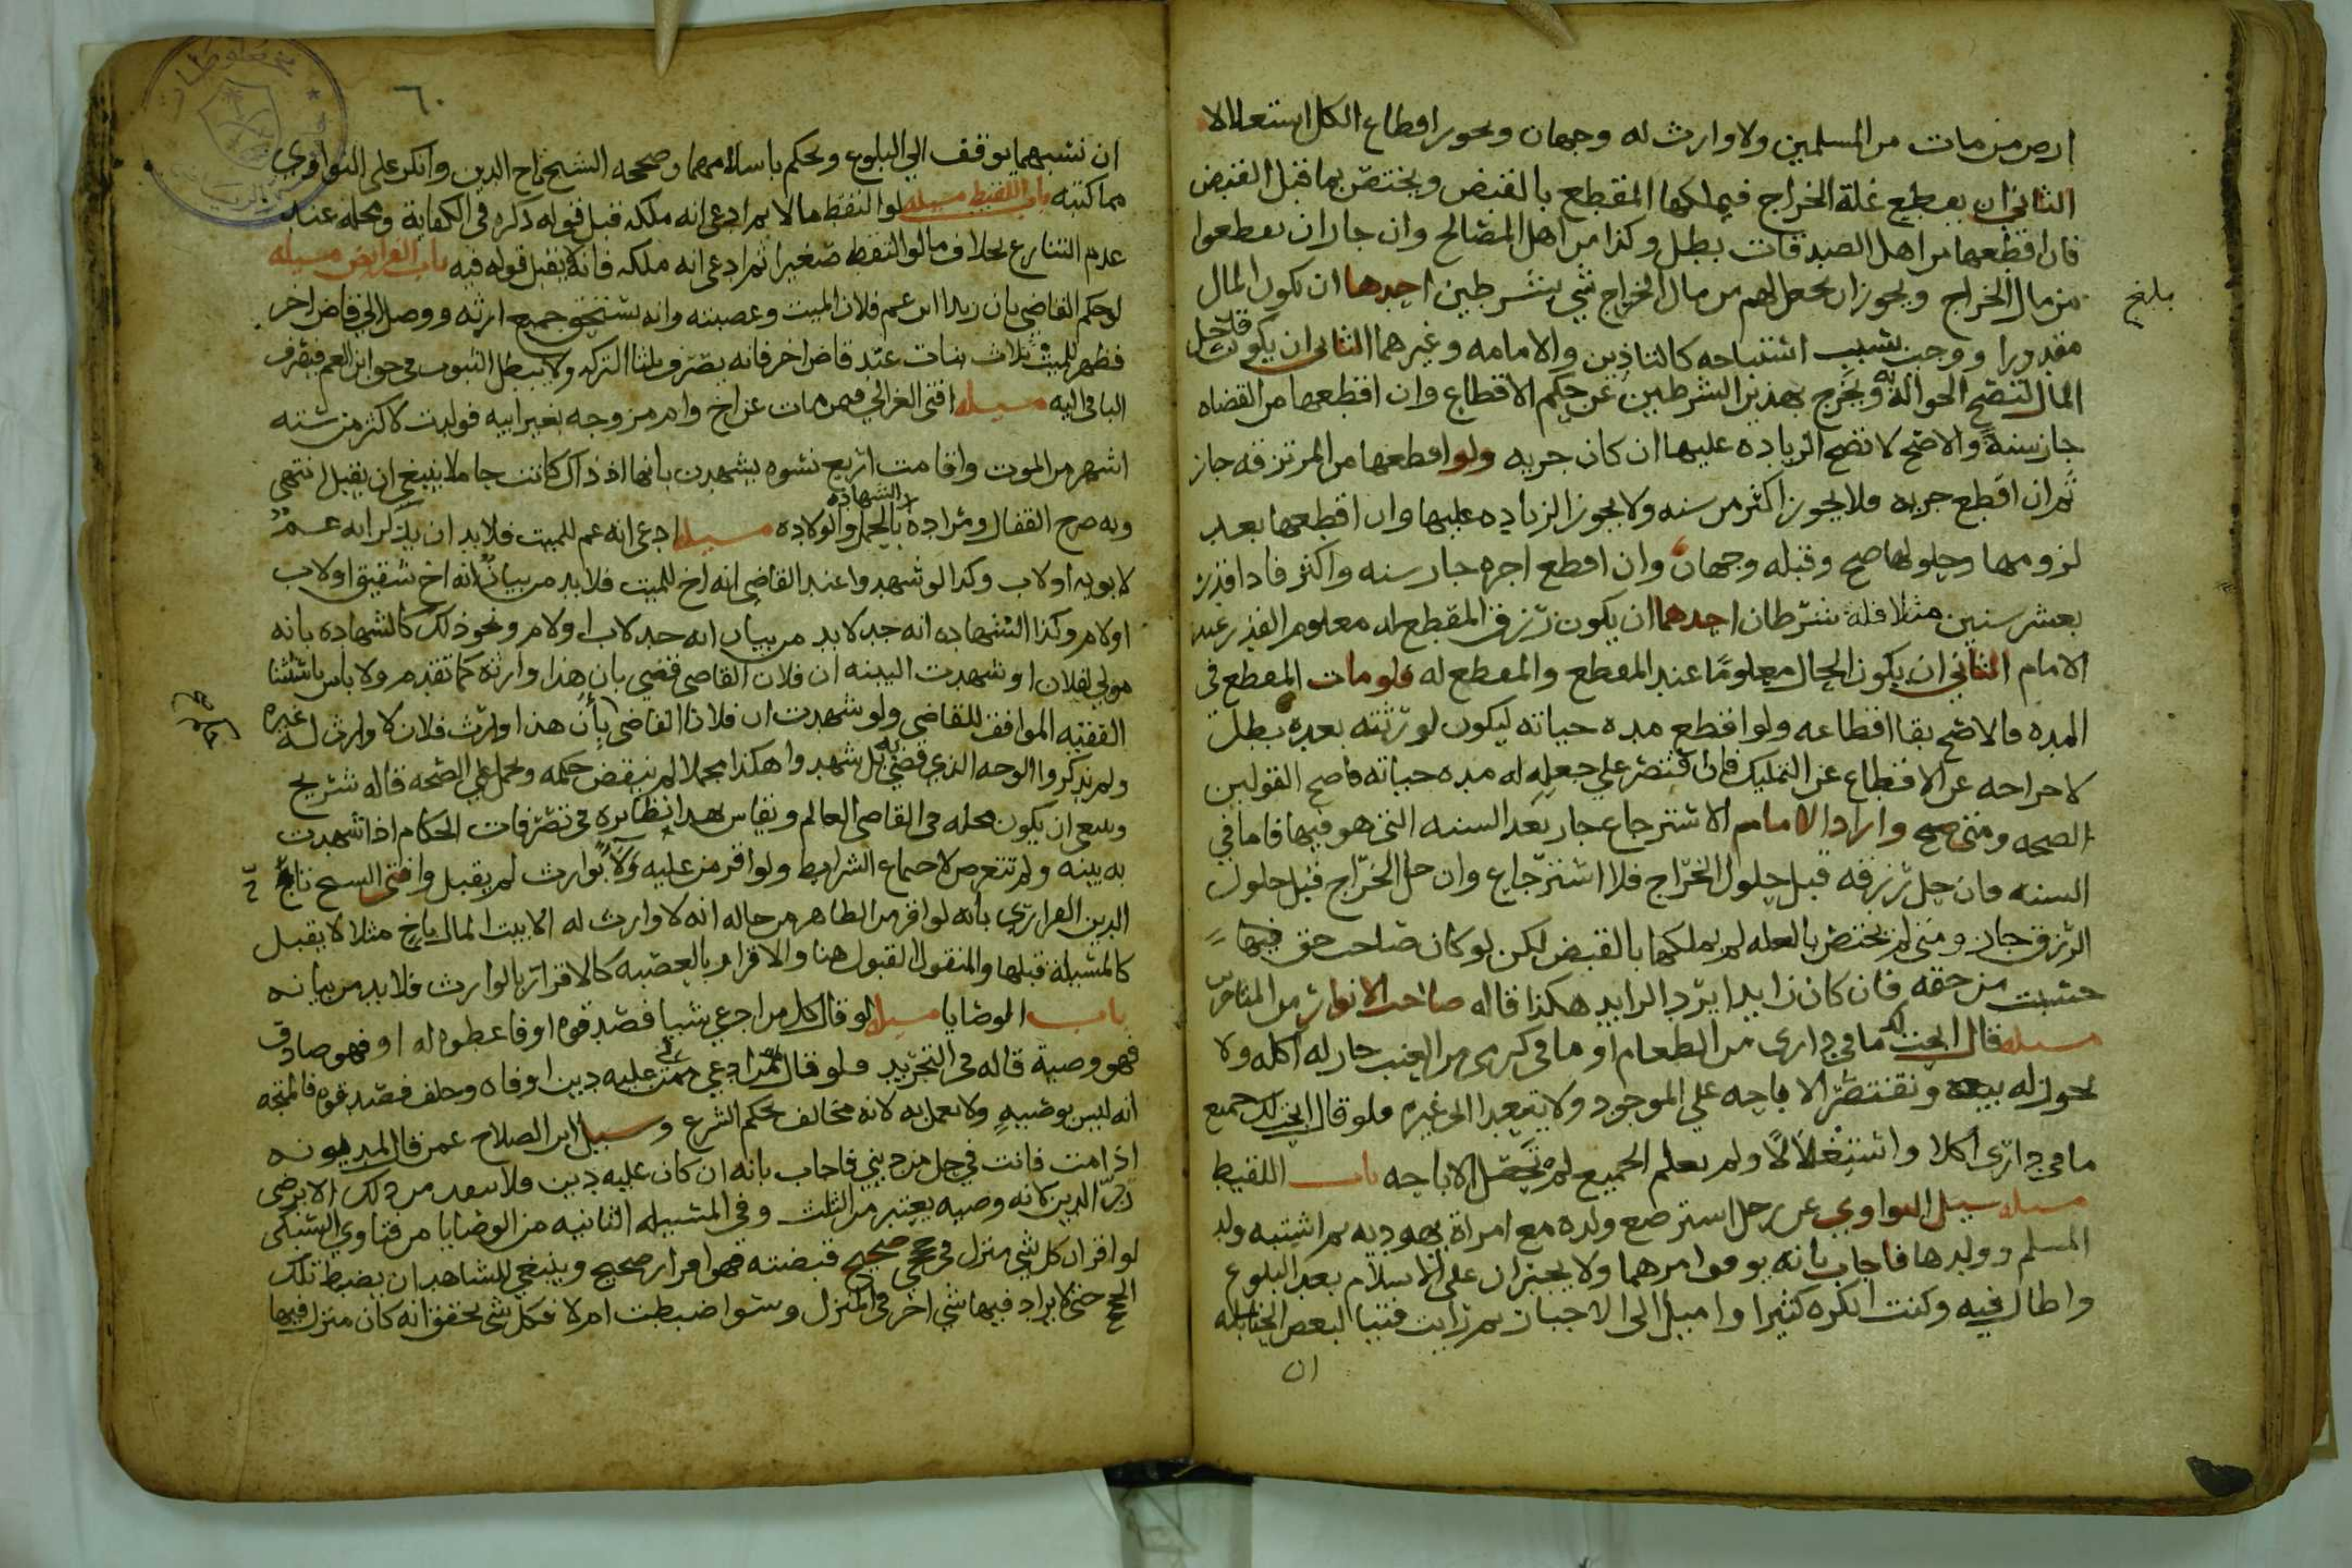 ارض من مات من المسلمين ولا وارث له وجهان ويجوز اقطاع الكل استغلالا
الثاني ان يقطع غلة الخراج فيملكها المقطع بالقبض ويختص بها قبل القبض
فان اقطعها من اهل الصدقات بطل وكذا من اهل المصالح وان جاز ان يعطوا
من مال الخراج ويجوز ان يجعل لهم من مال الخراج شي بشرطين احدهما ان يكون المال
مقدورا ووجب بسبب استباحه كالتاذين والامامه وغيرهما الثاني ان يكون قد حل
المال لتصح الحواله به ويخرج بهذين الشرطين عن حكم الاقطاع وان اقطعها من القضاه
جاز سنة والاصح لا تصح الزياده عليها ان كان جزيه ولو اقطعها من المرتزقه جاز
ثم ان اقطع جزيه فلا يجوز اكثر من سنه ولا يجوز الزياده عليها وان اقطعها بعد
لزومها وحلولها صح وقبله وجهان وان اقطع اجره جاز سنه واكثر فاذا قدرت
بعشر سنين مثلا فله شرطان احدهما ان يكون رزق المقطع له معلوم القدر عند
الامام الثاني ان يكون الحال معلومًا عند المقطع والمقطع له فلو مات المقطع في
المده فالاصح بقا اقطاعه ولو اقطع مده حياته ليكون لورثته بعده بطل
لاخراجه عن الاقطاع عن التمليك فان اقتصر على جعله له مده حياته فاصح القولين
الصحه ومتى صح واراد الامام الاسترجاع جاز بعد السنه التي هو فيها فاما في
السنه فان حل رزقه قبل حلول الخراج فلا استرجاع وان حل الخراج قبل حلول
الرزق جاز ومتى لم يختص بالغله لم يملكها بالقبض لكن لو كان صاحب حق فيها
حسبت من حقه فان كان زايدا يرد الزايد هكذا قاله صاحب الانوار من المتاخرين
مسيله قال ابحت لك ما في داري من الطعام او ما في كرمي من العنب جاز له اكله ولا
يجوز له بيعه وتقتصر الاباحه على الموجود ولا يتعدا الى غيره فلو قال ابحت لك جميع
ما في داري اكلا واستغلالًا ولم يعلم الجميع لم تحصل الاباحه باب اللقيط
مسيله سيل النواوي عن رجل استرضع ولده مع امراة يهوديه ثم اشتبه ولد
المسلم وولدها فاجاب بانه يوقف امرهما ولا يجبران على الاسلام بعد البلوغ
واطال فيه وكنت انكره كثيرا واميل الى الاجبار ثم رايت فتيا لبعض الحنابله
ان
بلغ
٦٠
ان نسبهما يوقف الى البلوغ ويحكم باسلامهما وصححه الشيخ تاج الدين وانكر على النواوي
مما كتبه باب اللقيط مسيله لو التقط مالا ثم ادعى انه ملكه قبل قوله ذكره في الكفاية ومحله عند
عدم التنازع بخلاف ما لو التقط صغيرا ثم ادعى انه ملكه فانه لا يقبل قوله فيه باب الفرايض مسيله
لو حكم القاضي بان زيدا ابن عم فلان الميت وعصبته وانه يستحق جميع ارثه ووصل الى قاض اخر
فظهر للميت ثلاث بنات عند قاض اخر فانه يصرف ثلثا التركه ولا يبطل الثبوت في حق ابن العم فيصرف
الباقي اليه مسيله افتى الغزالي فيمن مات عن اخ وام مزوجه بغير ابيه فولدت لاكثر من سته
اشهر من الموت واقامت اربع نسوه يشهدن بانها اذ ذاك كانت حاملا ينبغي ان يقبل انتهى
وبه صرح القفال ومراده الشهادة بالحمل والولاده مسيله ادعى انه عم للميت فلا بد ان يذكر انه عم
لابويه او لاب وكذا لو شهدوا عند القاضي انه اخ للميت فلا بد من بيان انه اخ شقيق او لاب
او لام وكذا الشهاده انه جد لا بد من بيان انه جد لاب او لام ونحو ذلك كالشهاده بانه
مولى لفلان او شهدت البينه ان فلان القاضي قضى بان هذا وارثه كما تقدم ولا باس باستثنا
الفقيه الموافق للقاضي ولو شهدت ان فلانا القاضي بأن هذا وارث فلان لا وارث له غيره
ولم يذكروا الوجه الذي قضى به بل شهدوا هكذا مجملا لم ينقض حكمه ويحمل على الصحه قاله شريح
وينبغي ان يكون محله في القاضي العالم ويقاس بهذا نظايره في تصرفات الحكام اذا شهدت
به بينه ولم تتعرض لاجتماع الشرايط ولو اقر من عليه ولاء بوارث لم يقبل وافتى الشيخ تاج
الدين الفزاري بانه لو اقر من الظاهر من حاله انه لا وارث له الا بيت المال باخ مثلا لا يقبل
كالمسيلة قبلها والمنقول القبول هنا والاقرار بالعصبه كالاقرار بالوارث فلا بد من بيانه
باب الوصايا مسيله لو قال كل من ادعى شيا فصدقوه او فاعطوه له او فهو صادق
فهو وصية قاله في التجريد فلو قال من ادعى علي من عليه دين اوفاه وحلف فصدقوه فالمتجه
انه ليس بوصية ولا يعمل به لانه مخالف لحكم الشرع وسيل ابن الصلاح عمن قال لمديونه
اذا مت فانت في حل من ديني فاجاب بانه ان كان عليه دين فلا ينفذ من ذلك الا برضى
رب الدين لانه وصيه يعتبر من الثلث وفي المسيله الثانيه من الوصايا من فتاوي السبكي
لو اقر ان كل شي منزل في حجج صحيح قبضته فهو اقرار صحيح وينبغي للشاهد ان يضبط تلك
الحجج حتى لا يزاد فيها شي اخر في المنزل وسوا ضبطت ام لا فكل شي تحقق انه كان منزل فيها